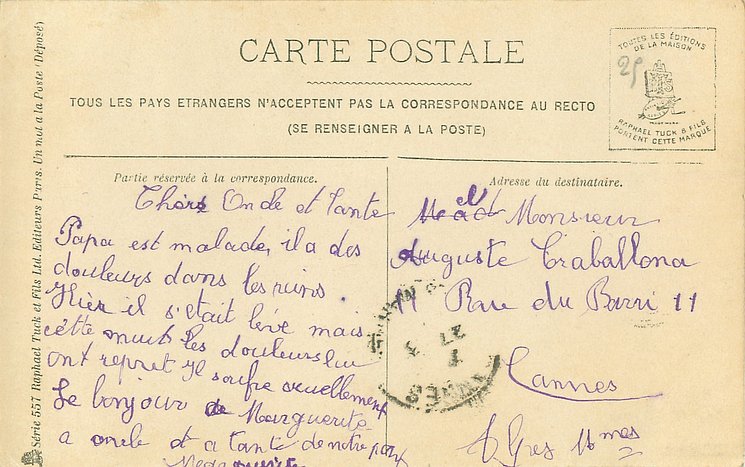 CARTE POSTALE
TOUS LES PAYS ETRANGERS N'ACCEPTENT PAS LA CORRESPONDANCE AU RECTO
(SE RENSEIGNER A LA POSTE)
TOUTES LES ÉDITIONS
DE LA MAISON
RAPHAEL TUCK & FILS
PORTENT CETTE MARQUE
25
Série 557 Raphael Tuck et Fils Ltd. Editeurs Paris. Un mot a la Poste (Déposé)
Partie réservée à la correspondance.
Chers Oncle et Tante
Papa est malade, il a des
douleurs dans les ruins.
Hier il s'était levé mais
cette nuit les douleurs lui
ont repret Il soufre cruellement
Le bonjour de Marguerite
a oncle et a tante de notre part
Adresse du destinataire.
Monsieur
Auguste Traballona
11 Rue du Barri 11
Cannes
Alpes Mmes